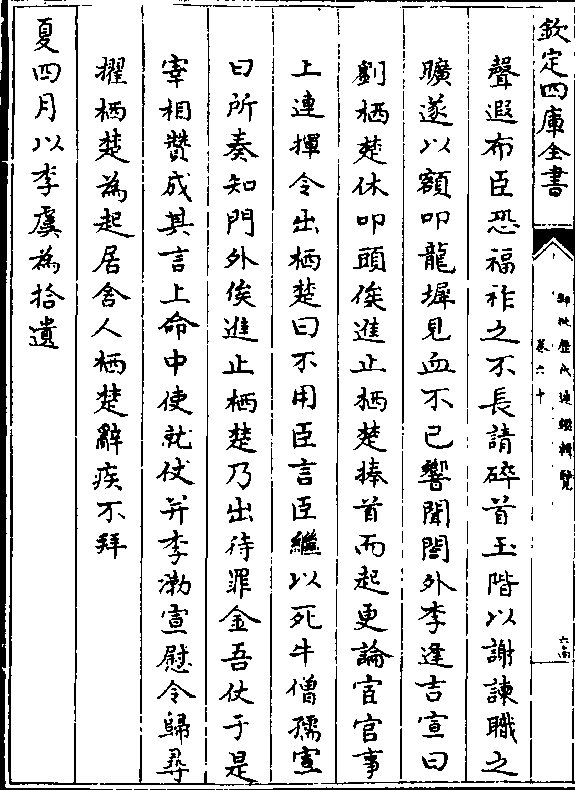 欽定四庫全書
御批歷代通鑑輯覽
卷六十
六十
聲遐布臣恐福祚之不長請碎首玉階以謝諫職之
曠遂以額叩龍墀見血不已響聞閤外李逢吉宣曰
劉栖楚休叩頭俟進止栖楚捧首而起更論宦官事
上連揮令出栖楚曰不用臣言臣繼以死牛僧孺宣
曰所奏知門外俟進止栖楚乃出待罪金吾仗于是
宰相贊成其言上命中使就仗并李渤宣慰令歸尋
擢栖楚為起居舍人栖楚辭疾不拜
夏四月以李虞為拾遺